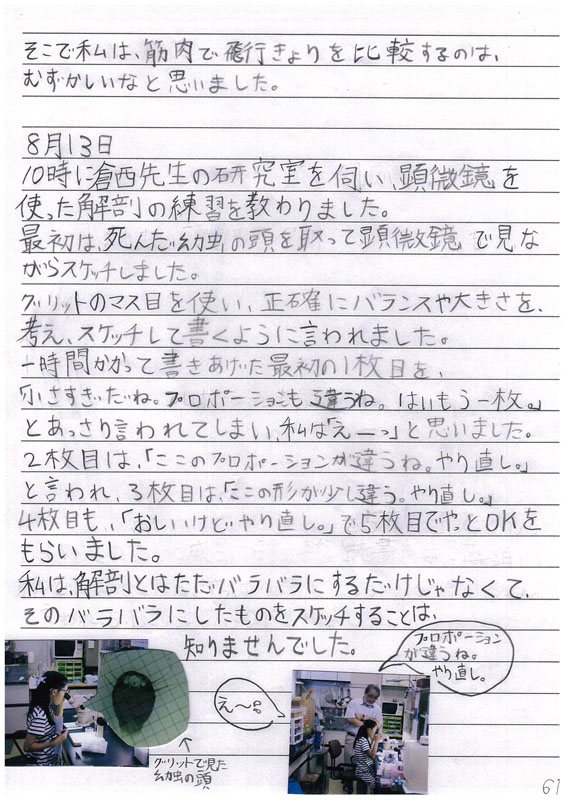 そこで私は、筋肉で飛行きょりを比較するのは、
むずかしいなと思いました。
8月13日
10時に倉西先生の研究室を伺い、顕微鏡を
使った解剖の練習を教わりました。
最初は、死んだ幼虫の頭を取って顕微鏡で見な
がらスケッチしました。
グリットのマス目を使い、正確にバランスや大きさを、
考え、スケッチして書くように言われました。
一時間かかって書きあげた最初の1枚目を、
「小さすぎだね。プロポーションも違うね。はいもう一枚。」
とあっさり言われてしまい、私は「えーっ」と思いました。
2枚目は、「ここのプロポーションが違うね。やり直し。」
と言われ、3枚目は、「ここの形が少し違う。やり直し。」
4枚目も、「おしいけどやり直し。」で5枚目でやっとOKを
もらいました。
私は、解剖とはただバラバラにするだけじゃなくて、
そのバラバラにしたものをスケッチすることは、
知りませんでした。
プロポーション
が違うね。
やり直し。
え〜
↑
グリットで見た
幼虫の頭
61